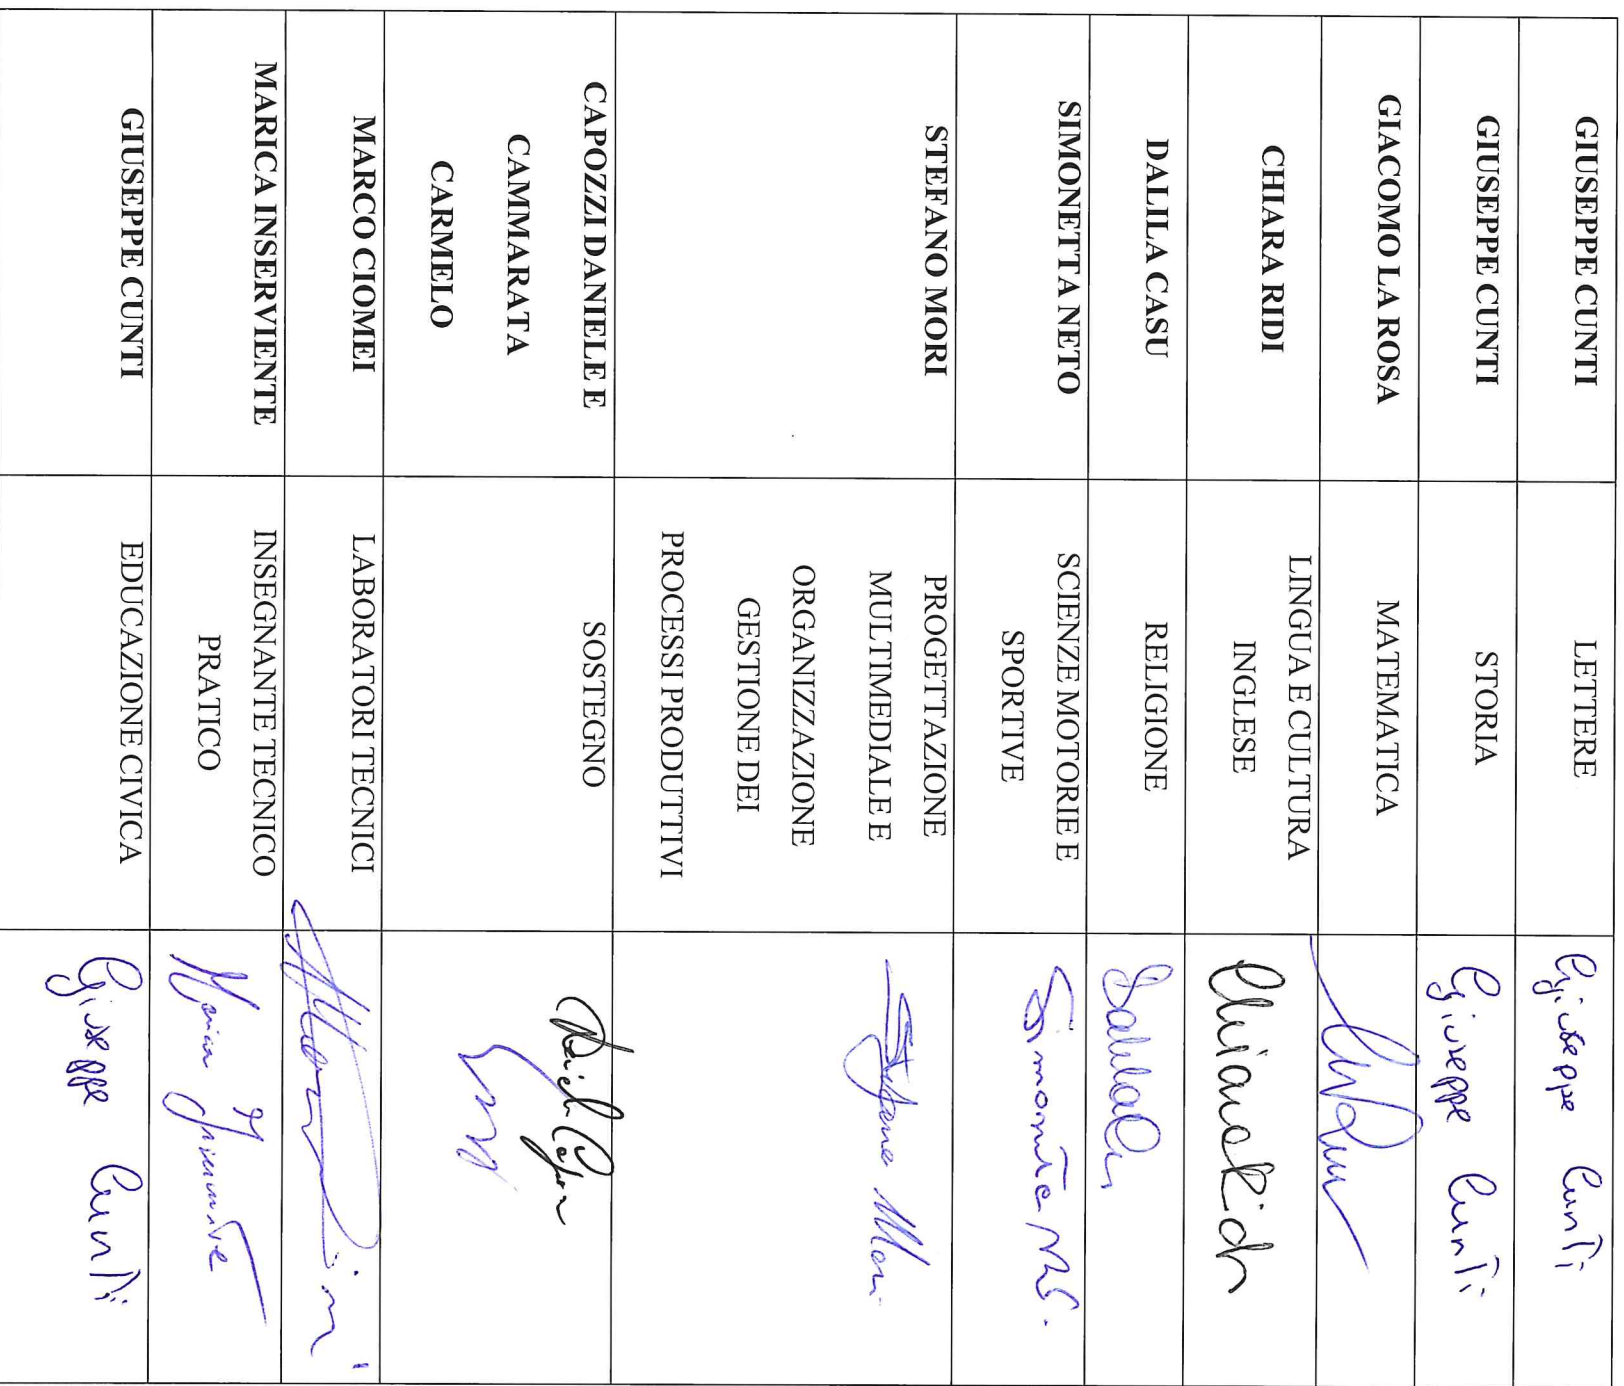 GIUSEPPE CUNTI
LETTERE
Giuseppe Cunti
GIUSEPPE CUNTI
STORIA
Giuseppe Cunti
GIACOMO LA ROSA
MATEMATICA
CHIARA RIDI
LINGUA E CULTURA
INGLESE
Chiara Ridi
DALILA CASU
RELIGIONE
SIMONETTA NETO
SCIENZE MOTORIE E
SPORTIVE
STEFANO MORI
PROGETTAZIONE
MULTIMEDIALE E
ORGANIZZAZIONE
GESTIONE DEI
PROCESSI PRODUTTIVI
Stefano Mori
CAPOZZI DANIELE E
CAMMARATA
CARMELO
SOSTEGNO
MARCO CIOMEI
LABORATORI TECNICI
MARICA INSERVIENTE
INSEGNANTE TECNICO
PRATICO
EDUCAZIONE CIVICA
GIUSEPPE CUNTI
Giuseppe Cunti